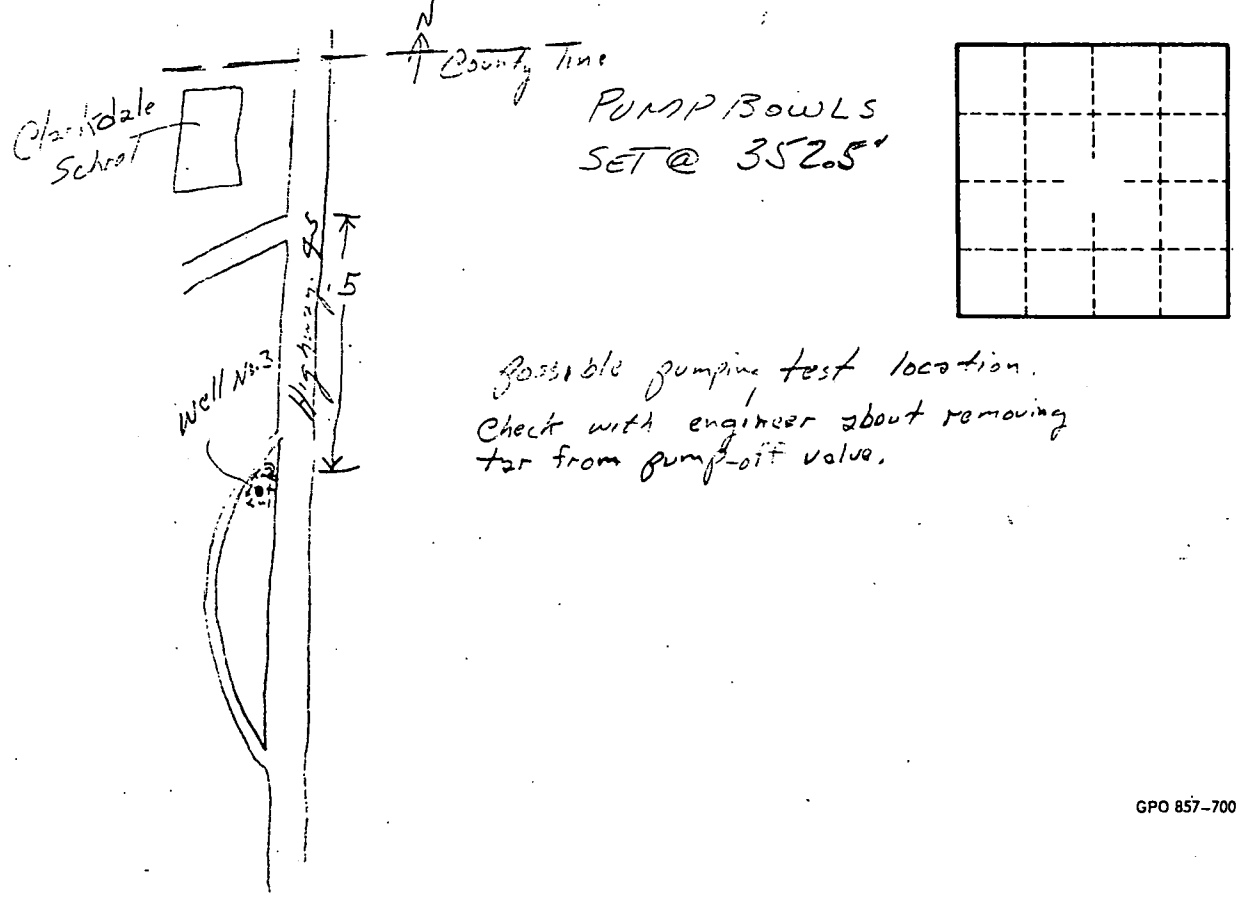 N
County Line
Clarkdale
School
PUMP BOWLS
SET @ 352.5'
Highway 45
.5
Well No. 3
Possible pumping test location.
Check with engineer about removing
tar from pump-off valve.
GPO 857-700